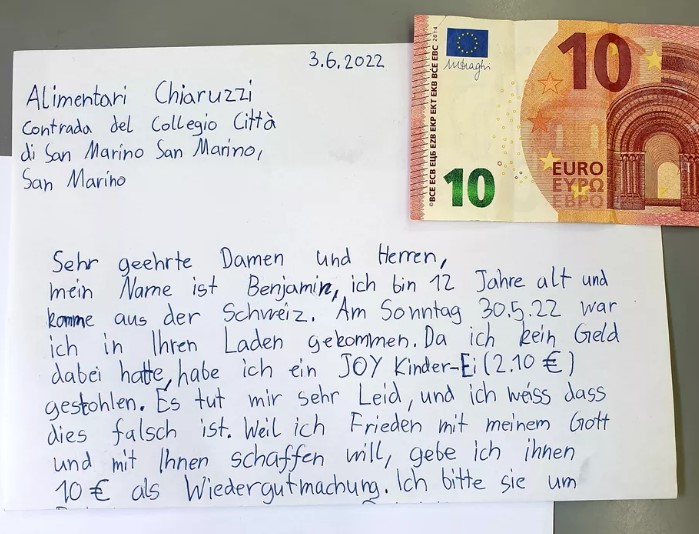 3.6.2022
Alimentari Chiaruzzi
Contrada del Collegio Città
di San Marino San Marino,
San Marino
Sehr geehrte Damen und Herren,
mein Name ist Benjamin, ich bin 12 Jahre alt und
komme aus der Schweiz. Am Sonntag 30.5.22 war
ich in Ihren Laden gekommen. Da ich kein Geld
dabei hatte, habe ich ein JOY Kinder-Ei (2.10 €)
gestohlen. Es tut mir sehr Leid, und ich weiss dass
dies falsch ist. Weil ich Frieden mit meinem Gott
und mit Ihnen schaffen will, gebe ich ihnen
10 € als Wiedergutmachung. Ich bitte sie um
10
EURO
ΕΥΡΩ
ЕВРО
10
BCE ECB ЕЦБ EZB EKP EKT EKB BĊE EBC 2014